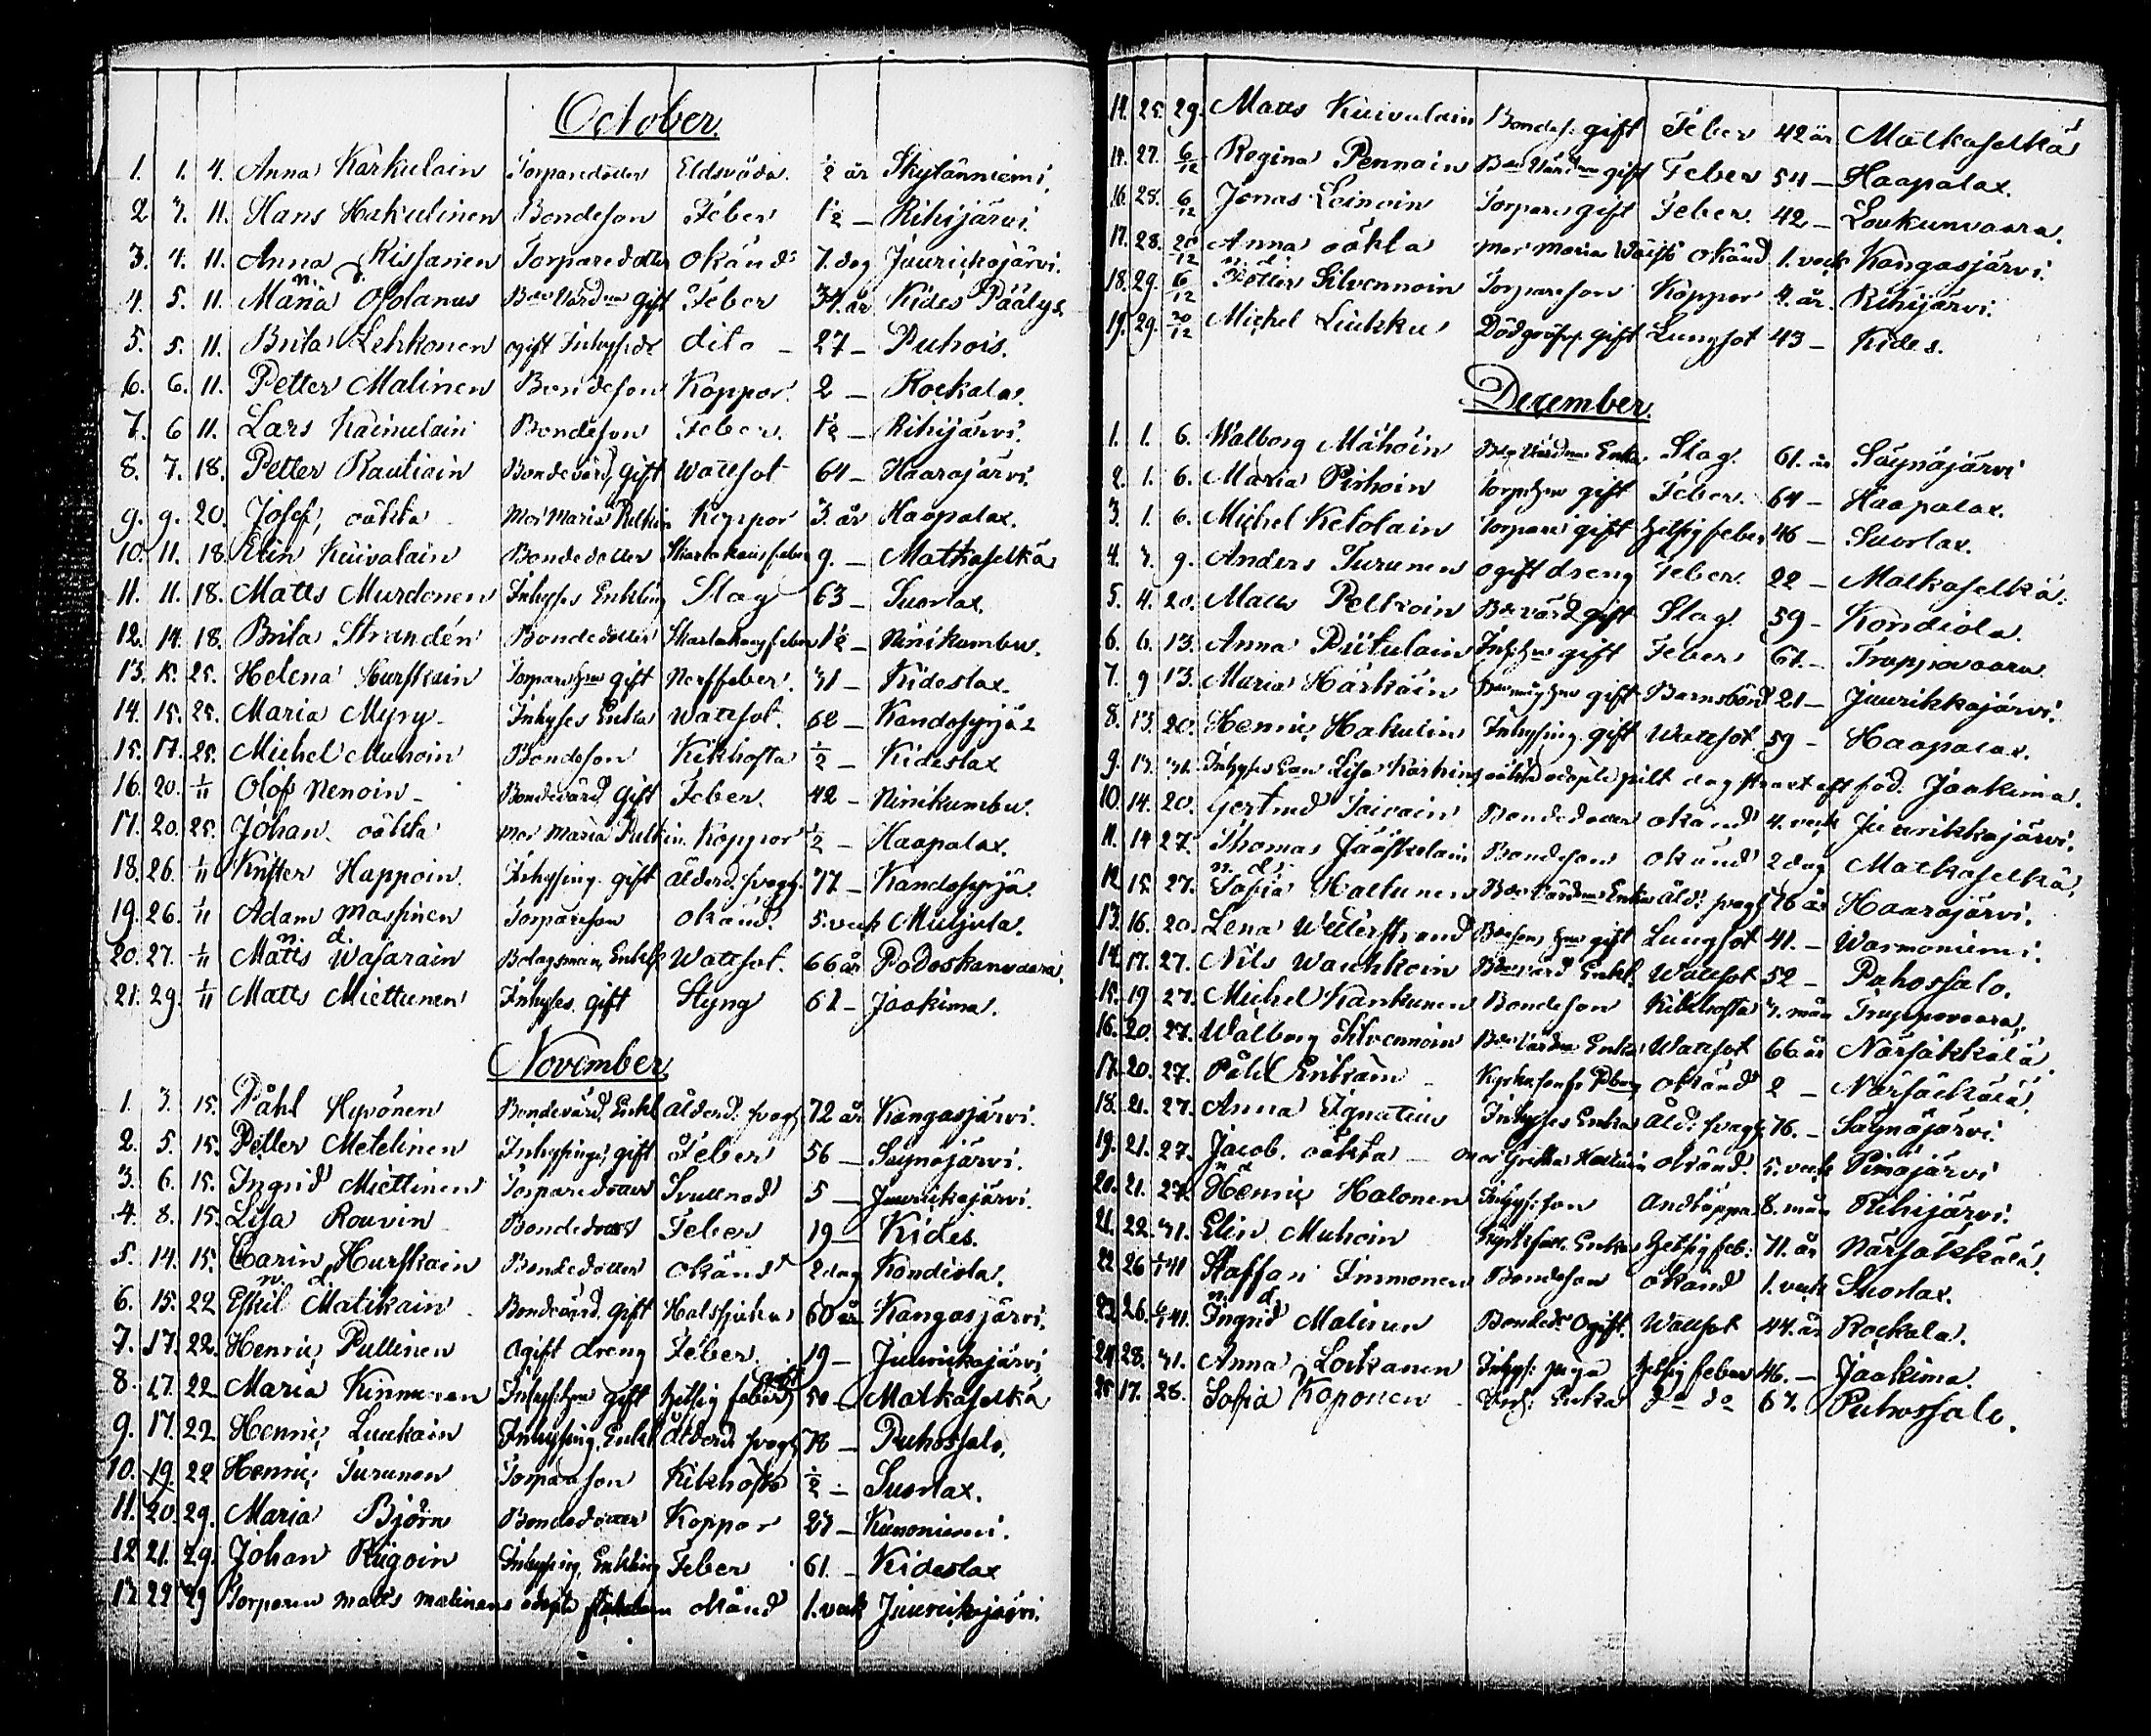 October.
1. 1. 4. Anna Karkulain Torparedotter Eldsvåda. ½ år Skytänniemi.
2 3. 11. Hans Hakulinen Bondeson Feber 1½ — Rihijärvi.
3. 4. 11. Anna Kissanen Torparedotter okänd 7. dag Juurickojärvi.
n. d.
4. 5. 11. Maria Opolanus Bde Värd gift Feber 34. år Kides Päälys
5. 5. 11. Brita Lehkonen ogift Inhyses dito – 27 – Puhois.
6. 6. 11. Petter Malinen Bondeson Koppor. 2 — Rockala.
7. 6 11. Lars Kainulain Bondeson Feber. 1½ — Rihijärvi.
8. 7. 18. Petter Rautiain Bondevärd, Gift Wattsot 64 — Haarajärvi.
9. 9. 20. Josef, oäkta Mor Maria Koppor 3. år Haapalax.
10. 11. 18. Elin Kuivalain Bondedotter Skarlakansfeber 9. — Matkaselkä
11. 11. 18. Matts Murdonen Inhyses Enkling Slag 63 — Suorlax.
12. 14. 18. Brita Strandén Bondedotter Skarlakansfeber 1½ — Ninikumbu.
13. 15. 25. Helena Hurskain Torpares gift Nerffeber. 31 — Kideslax.
14. 15. 25. Maria Myry – Inhyses Enka Wattsot. 62 — Kandosyrjä
15. 17. 25. Michel Muhoin Bondeson Kikhosta ½ — Kideslax
16. 20. 1/11 Olof Nenoin – Bondevärd Gift Feber. 42 – Ninikumbu.
17. 20. 25. Johan oäkta Mor Maria Koppor ½ — Haapalax.
18. 26. 1/11 Krister Happoin. Inhysing gift ålderd. svagh. 77 — Kandosyrjä.
19. 26. 1/11 Adam Massinen Torpareson okänd. 5. veck Muljula.
n. d.
20. 27. 1/11 Matts Wasarain Enkl Wattsot. 66 år Podoskanvaara.
21. 29. 1/11 Matts Miettunen Inhyses gift Styng 61 — Jaakima.
November
1. 3. 15. Påhl Hyvönen Bondevärd, Enkl ålderd. svagh 72 år Kangasjärvi.
2. 5. 15. Petter Metelinen Inhysing gift Feber 56 — Säynäjärvi.
3. 6. 15. Ingrid Miettinen Torparedotter Svullnad 5 — Juurickajärvi.
4. 8. 15. Lisa Rouvin Bondedotter Feber 19 — Kides.
5. 14. 15. Carin Hurskain Bondedotter okänd 2 dag Kondiola.
n. d.
6. 15. 22 Eskil Matikain Bondevärd gift Halssjukan 60 år Kangasjärvi.
7. 17. 22. Henric Pullinen Ogift dreng Feber. 19 — Juurickajärvi
8. 17. 22 Maria Kinnunen Inhys: gift hetsig feber 50 — Matkaselkä
9. 17. 22 Henric Luukain Inhysing, Enkl Ålderd. svagh 78 — Puhossalo.
10. 19 22 Henric Turunen Torpareson Kikhosta ½ — Suorlax.
11. 20. 29. Maria Björn Bondedotter Koppor 27 — Kunoniemi.
12 21. 29. Johan Riigoin Inhysing, Enkling Feber 61. — Kideslax
13 22 29 Torparen Matts Malinens odöpte okänd 1. veck Juurickajärvi.
14. 25. 29. Matts Kuivalain Bondes: gift Feber 42 år Matkaselkä
15. 27. 6/12 Regina Pennain Bde Värd gift Feber 54 — Haapalax.
16. 28. 6/12 Jonas Loinoin Torpare gift Feber. 42 — Loukunvaara.
17. 28. 20/12 Anna oäkta Mor Maria okänd 1. veck Kangasjärvi.
n. d.
18. 29. 6/12 Petter Silvennoin Torpareson Koppor 4. år. Rihijärvi.
19. 29. 20/12 Michel Liukku Dödgräf: gift Lungsot 43 — Kides.
December.
1. 1. 6. Walborg Mähöin Bde Värd Enka Slag. 61. år Säynäjärvi
2. 1. 6. Maria Pirhoin gift Feber. 64 — Haapalax.
3. 1. 6. Michel Ketolain Torpare gift hetsig feber 46 — Suorlax.
4. 3. 9. Anders Turunen ogift dreng Feber. 22 — Matkaselkä.
5. 4. 20. Matts Peltoin Bde värd gift Slag 59 – Kondiola.
6. 6. 13. Anna Piitulain gift Feber 61. – Truppovaara.
7. 9 13. Maria Härköin gift Barnsbörd 21 — Juurikkajärvi.
8. 13. 20. Henric Hakulin Inhysing. gift Wattsot 59 – Haapalax.
9. 13. 31. Inhyses Enk Lisa Kärkins oäkta odöpte pilt dog strax eft föd. Jaakima.
10. 14. 20. Gertrud Toivain Bondedotter okänd 4. veck Juurikkajärvi.
11. 14 27. Thomas Jääskelain Bondeson okänd 2 dag Matkaselkä.
n. d.
12. 15. 27. Sofia Haltunen Bde Värd Enka åld: svagh 76 år Haarajärvi.
13. 16. 20. Lena Wetterstrand gift Lungsot 41. — Warmoniemi.
14. 17. 27. Nils Wauhkoin Bde värd Enkl. Wattsot 52 – Puhossalo.
15. 19 27. Michel Kankunen Bondeson Kikhosta 3. mån Truppovaara.
16. 20. 27. Walborg Silvennoin Bde Värd Enka Wattsot 66 år Närsäkkälä.
17. 20. 27. Påhl okänd 2 – Närsäckälä.
18. 21. 27. Anna Ignatius Inhyses Enka Åld: svagh 76. – Säynäjärvi.
19. 21. 27. Jacob. oäkta – Mor Gretha okänd. 5. veck Pimäjärvi
n d
20. 21. 27. Henric Halonen Inhys: son Andtäppa 8. mån Rihijärvi.
21. 22. 31. Elin Muhoin Enka hetsig feb: 71. år Närsäkkälä.
22 26 1/1 41 Staffan Immonen Bondeson okänd 1. veck Suorlax.
n. d.
23. 26. 6/1 41. Ingrid Malinen Bonded. Ogift. Wattsot 44. år Rockala.
24. 28. 31. Anna Loikanen Inhys: piga hetsig feber 46. – Jaakima.
25 17. 28. Sofia Koponen Inh: Enka do do 67. Puhossalo.